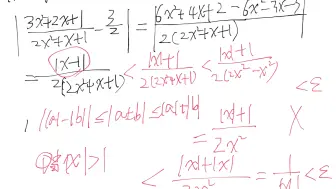 |3x²+2x+1 / 2x²+x+1 - 3/2| = |6x²+4x+2-6x²-3x-3 / 2(2x²+x+1)|
= |x-1| / 2(2x²+x+1) < |x|+1 / 2(2x²+x+1) < |x|+1 / 2(2x²-x²) < ε
||a|-|b|| ≤ |a±b| ≤ |a|+|b| = |x|+1 / 2x² X
|x|>1 < |x|+|x| / 2x² = 1/|x| < ε